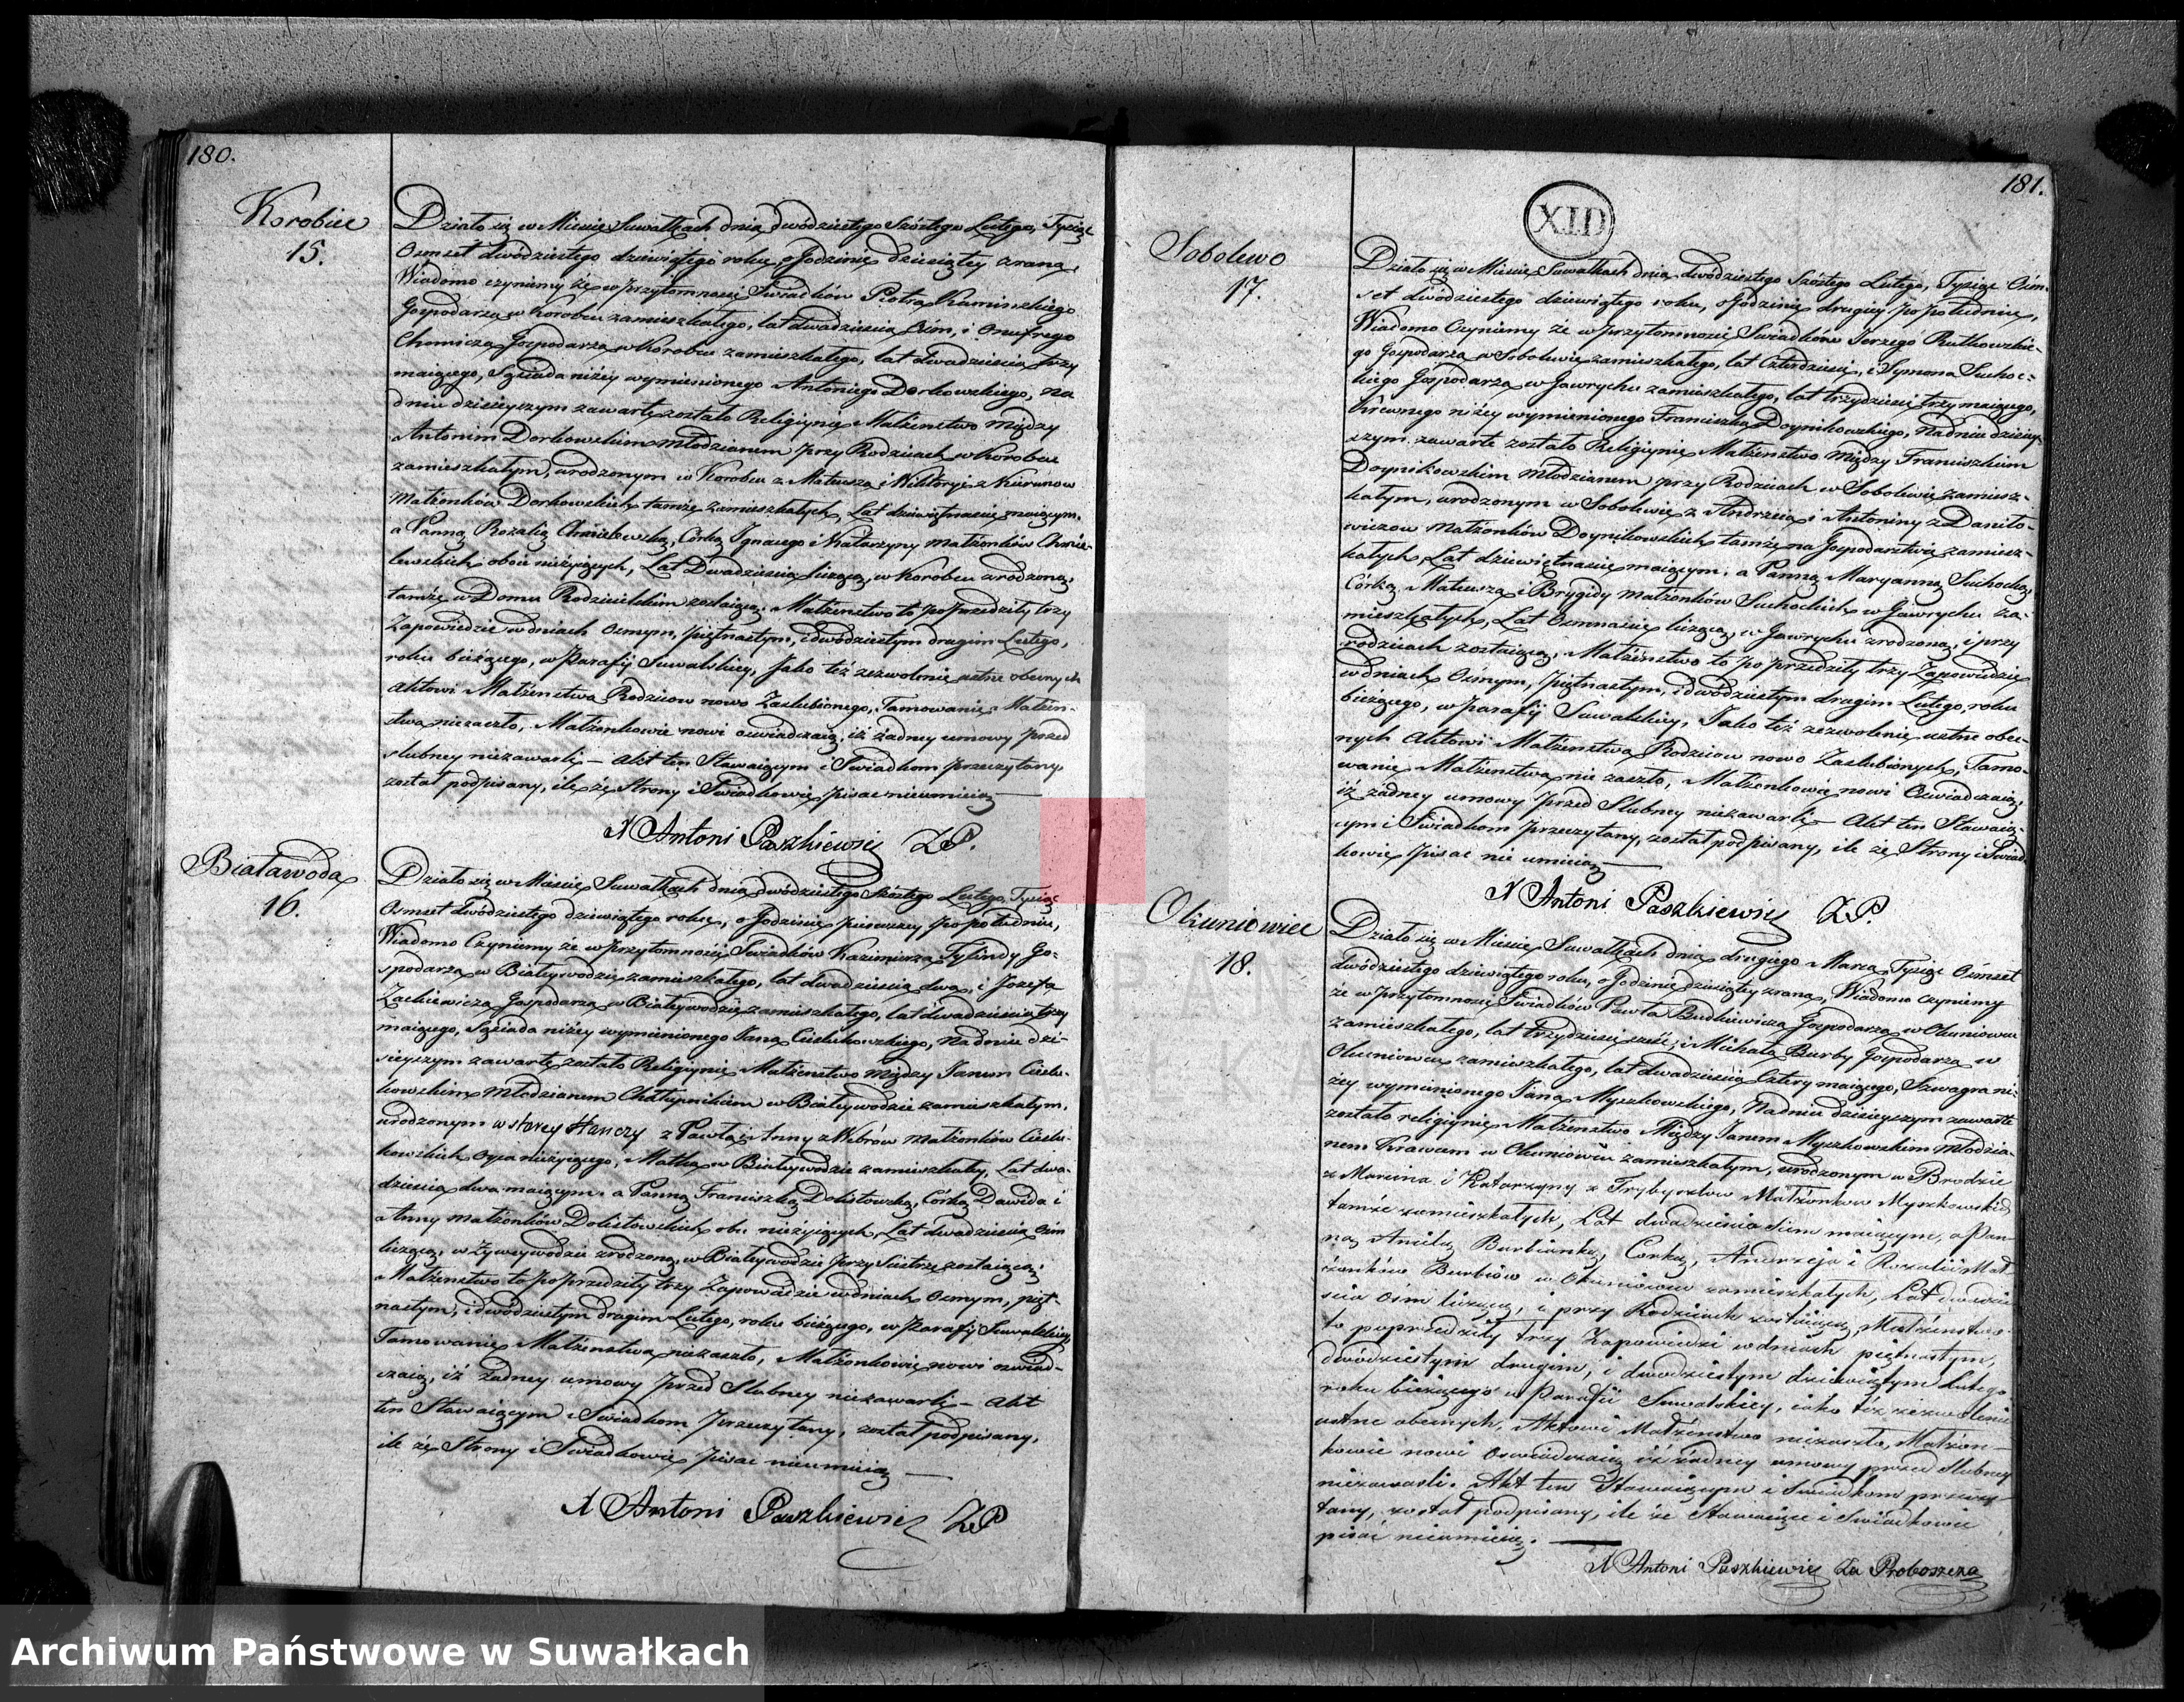 180.
Korobiec
15.
Działo się w Mieście Suwałkach dnia dwódziestego Szóstego Lutego, Tysiąc
Osmset dwódziestego dziewiątego roku, o Godzinie dziesiątey zrana,
Wiadomo czyniemy że w przytomności Swiadków Piotra Kaminskiego
Gospodarza w Korobcu zamieszkałego, lat dwadziescia Osm, i Onufrego
Chomicza Gospodarza w Korobcu zamieszkałego, lat dwadziescia trzy
maiącego, Sąsiada niżey wymienionego Antoniego Dorkowskiego, na
dniu dzisieyszym zawarte zostało Religiynie Małżenstwo między
Antonim Dorkowskim Młodzianem przy Rodzicach w Korobcu
zamieszkałym, urodzonym w Korobcu z Mateusza i Wiktoryi z
Małżonków Dorkowskich tamże zamieszkałych, Lat dziewiętnascie maiącym.
a Panną Rozalią Córką Ignacego i Katarzyny małżonków
obóie nieżyiących, Lat Dwadziescia liczącą, w Korobcu urodzoną,
tamże w Domu Rodzicielskim zostaiącą. Małżenstwo to poprzedziły trzy
Zapowiedzie w dniach Osmym, piętnastym, i dwódziestym drugim Lutego,
roku bieżącego, w Parafij Suwalskiey, Jako też zezwolenie ustne obecnych
Aktowi Małżenstwa Rodzicow nowo Zaslubionego, Tamowanie Małżen-
stwa niezaszło, Małżonkowie nowi oswiadczaią, iż żadney umowy przed
slubney niezawarli – Akt ten Stawaiącym i Swiadkom przeczytany
został podpisany, ile że Strony i Swiadkowie pisac nieumieią
X Antoni Paszkiewicz ZP.
Białawoda
16.
Działo się w Miescie Suwałkach dnia dwódziestego Szóstego Lutego, Tysiąc
Osmset dwódziestego dziewiątego roku, o Godzinie pierwszey po południu,
Wiadomo Czyniemy że w przytomności Swiadków Kazimierza Tylindy Go-
spodarza w Białeywodzie zamieszkałego, lat dwadziescia dwa, i Jozefa
Zackiewicza Gospodarza w Białeywodzie zamieszkałego, lat dwadziescia trzy
maiącego, Sąsiada niżey wymienionego Jana Cieslukowskiego, na dniu dzi-
sieyszym zawarte zostało Religiynie Małżenstwo między Janem Cieslu-
kowskim Młodzianem Chałupnikiem w Białeywodzie zamieszkałym,
urodzonym w starey Hanczy z Pawła i Anny z Małżonków Cieslu-
kowskich Oyca nieżyiącego, Matka w Białeywodzie zamieszkałey, Lat dwa-
dziescia dwa maiącym. a Panną Franciszką Dolistowską, Córką Dawida i
Anny małżonków Dolistowskich nieżyiących, Lat dwadziescia Osm
liczącą, w Żyweywodzie urodzoną, w Białeywodzie przy Siestrze zostaiącą.
Małżenstwo to poprzedziły trzy Zapowiedzie w dniach Osmym, pięt-
nastym, i dwódziestym drugim Lutego, roku bieżącego, w Parafij Suwalskiey,
Tamowanie Małżenstwa niezaszło, Małżonkowie nowi oswiad-
czaią, iż żadney umowy przed Slubney niezawarli – Akt
ten Stawaiącym i Swiadkom przeczytany, został podpisany,
ile że Strony i Swiadkowie pisac nieumieią
X Antoni Paszkiewicz ZP
181.
XID
Sobolewo
17.
Działo się w Miescie Suwałkach dnia dwódziestego Szóstego Lutego, Tysiąc Osm-
set dwódziestego dziewiątego roku, o Godzinie drugiey po południu,
Wiadomo Czyniemy że w przytomności Swiadków Jerzego Rutkowskie-
go Gospodarza w Sobolewie zamieszkałego, lat Czterdziesci, i Symona Suchoc-
kiego Gospodarza w Gawrychu zamieszkałego, lat trzydziesci trzy maiącego,
Krewnego niżey wymienionego Franciszka Doynikowskiego, Na dniu dzisiey-
szym zawarte zostało Religiynie Małżenstwo między Franciszkiem
Doynikowskim Młodzianem przy Rodzicach w Sobolewie zamiesz-
kałym, urodzonym w Sobolewie z Andrzeia i Antoniny z Daniło-
wiczow Małżonków Doynikowskich tamże na Gospodarstwie zamiesz-
kałych, Lat dziewiętnascie maiącym. a Panną Maryanną Suchocką,
Córką Mateusza i Brygidy małżonków Suchockich w Gawrychu za-
mieszkałych, Lat Osmnascie liczącą, w Gawrychu urodzoną, i przy
rodzicach zostaiącą, Małżenstwo to poprzedziły trzy Zapowiedzie
w dniach Osmym, piętnastym, i dwódziestym drugim Lutego, roku
bieżącego, w Parafij Suwalskiey, Jako też zezwolenie ustne obec-
nych Aktowi Małżenstwa Rodzicow nowo Zaslubionych, Tamo-
wanie Małżenstwa nie zaszło, Małżonkowie nowi Oswiadczaią,
iż żadney umowy przed Slubney niezawarli – Akt ten Stawaią-
cym i Swiadkom przeczytany, został podpisany, ile że Strony i Swiad-
kowie pisac nie umieią
X Antoni Paszkiewicz ZP.
Okuniowiec
18.
Działo się w Miescie Suwałkach dnia drugiego Marca Tysiąc Osmset
dwódziestego dziewiątego roku, o Godzinie dziesiątey zrana, Wiadomo czyniemy
że w przytomności Swiadków Pawła Budkiewicza Gospodarza w Okuniowcu
zamieszkałego, lat trzydziesci szesć, i Michała Burby Gospodarza w
Okuniowcu zamieszkałego, lat dwadziescia Cztery maiącego, Szwagra ni-
żey wymienionego Jana Myszkowskiego, Na dniu dzisieyszym zawarte
zostało religiynie Małżenstwo Między Janem Myszkowskim Młodzia-
nem Krawcem w Okuniowcu zamieszkałym, urodzonym w Brodzie
z Marcina i Katarzyny z Małżonkow Myszkowskich
tamże zamieszkałych, Lat dwadziescia siem maiącym, a Pan-
ną Anielą Burbianką, Corką, Andrzeja i Rozalii Mał-
żonków Burbiów w Okuniowcu zamieszkałych, Lat dwadzie-
scia Osm liczącą, i przy Rodzicach zostaiącą, Małżenstwo
to poprzedziły trzy Zapowiedzi w dniach piętnastym,
dwódziestym drugim, i dwudziestym dziewiątym Lutego
roku bieżącego w Parafii Suwalskiey, iako też zezwolenie
ustne obecnych, Aktowi Małżenstwa niezaszło, Małżon-
kowie nowi Oswiadczaią iż żadney umowy przed slubney
niezawarli. Akt ten Stawaiącym i Swiadkom przeczy-
tany, został podpisany, ile że Stawaiące i Swiadkowie
pisać nieumieią.
X Antoni Paszkiewicz Za Proboszcza
Archiwum Państwowe w Suwałkach